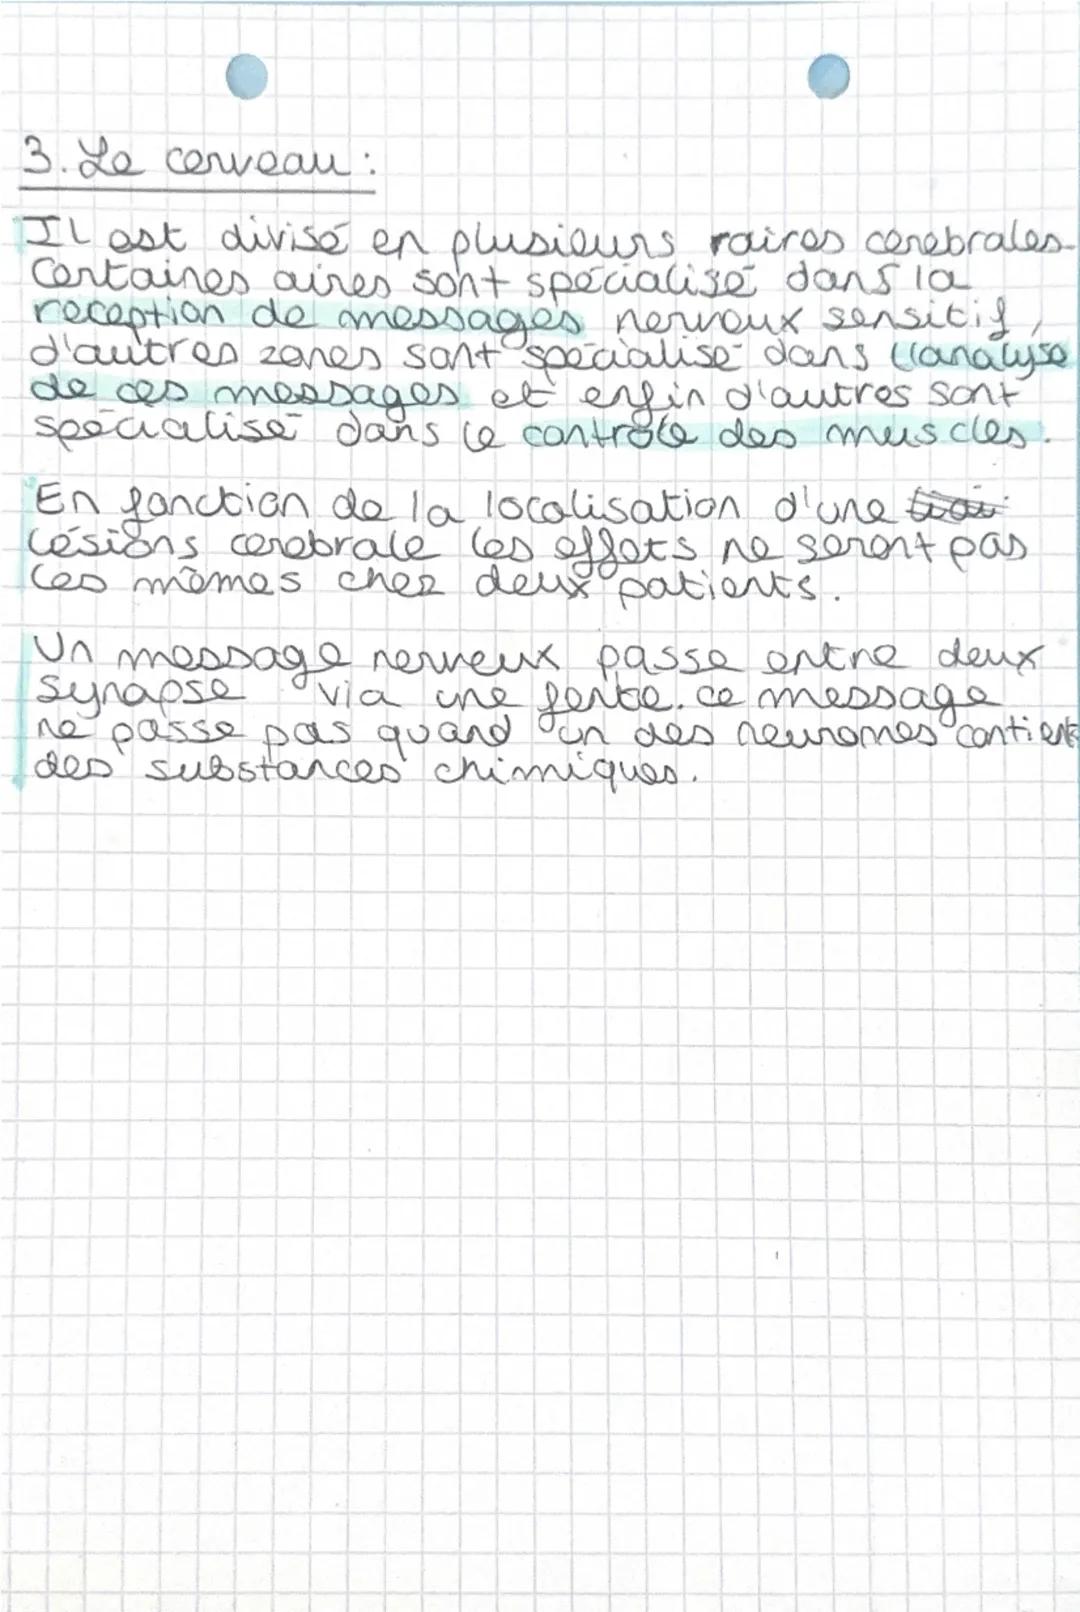 3. Le cerveau :
Il est divisé en plusieurs raires cerebrales
Certaines aires sont spécialisé dans la
reception de messages nerveux sensitif,
d'autres zones sont spécialisé dans l'analyse
de ces messages et enfin d'autres sont
spécialisé dans le contrôle des muscles.
En fonction de la localisation d'une
lésions cerebrale les effets ne seront pas
les mêmes chez deux patients.
Un message nerveux passe entre deux
synapse via une fente. ce message
ne passe pas quand un des neuromes contient
des substances chimiques.